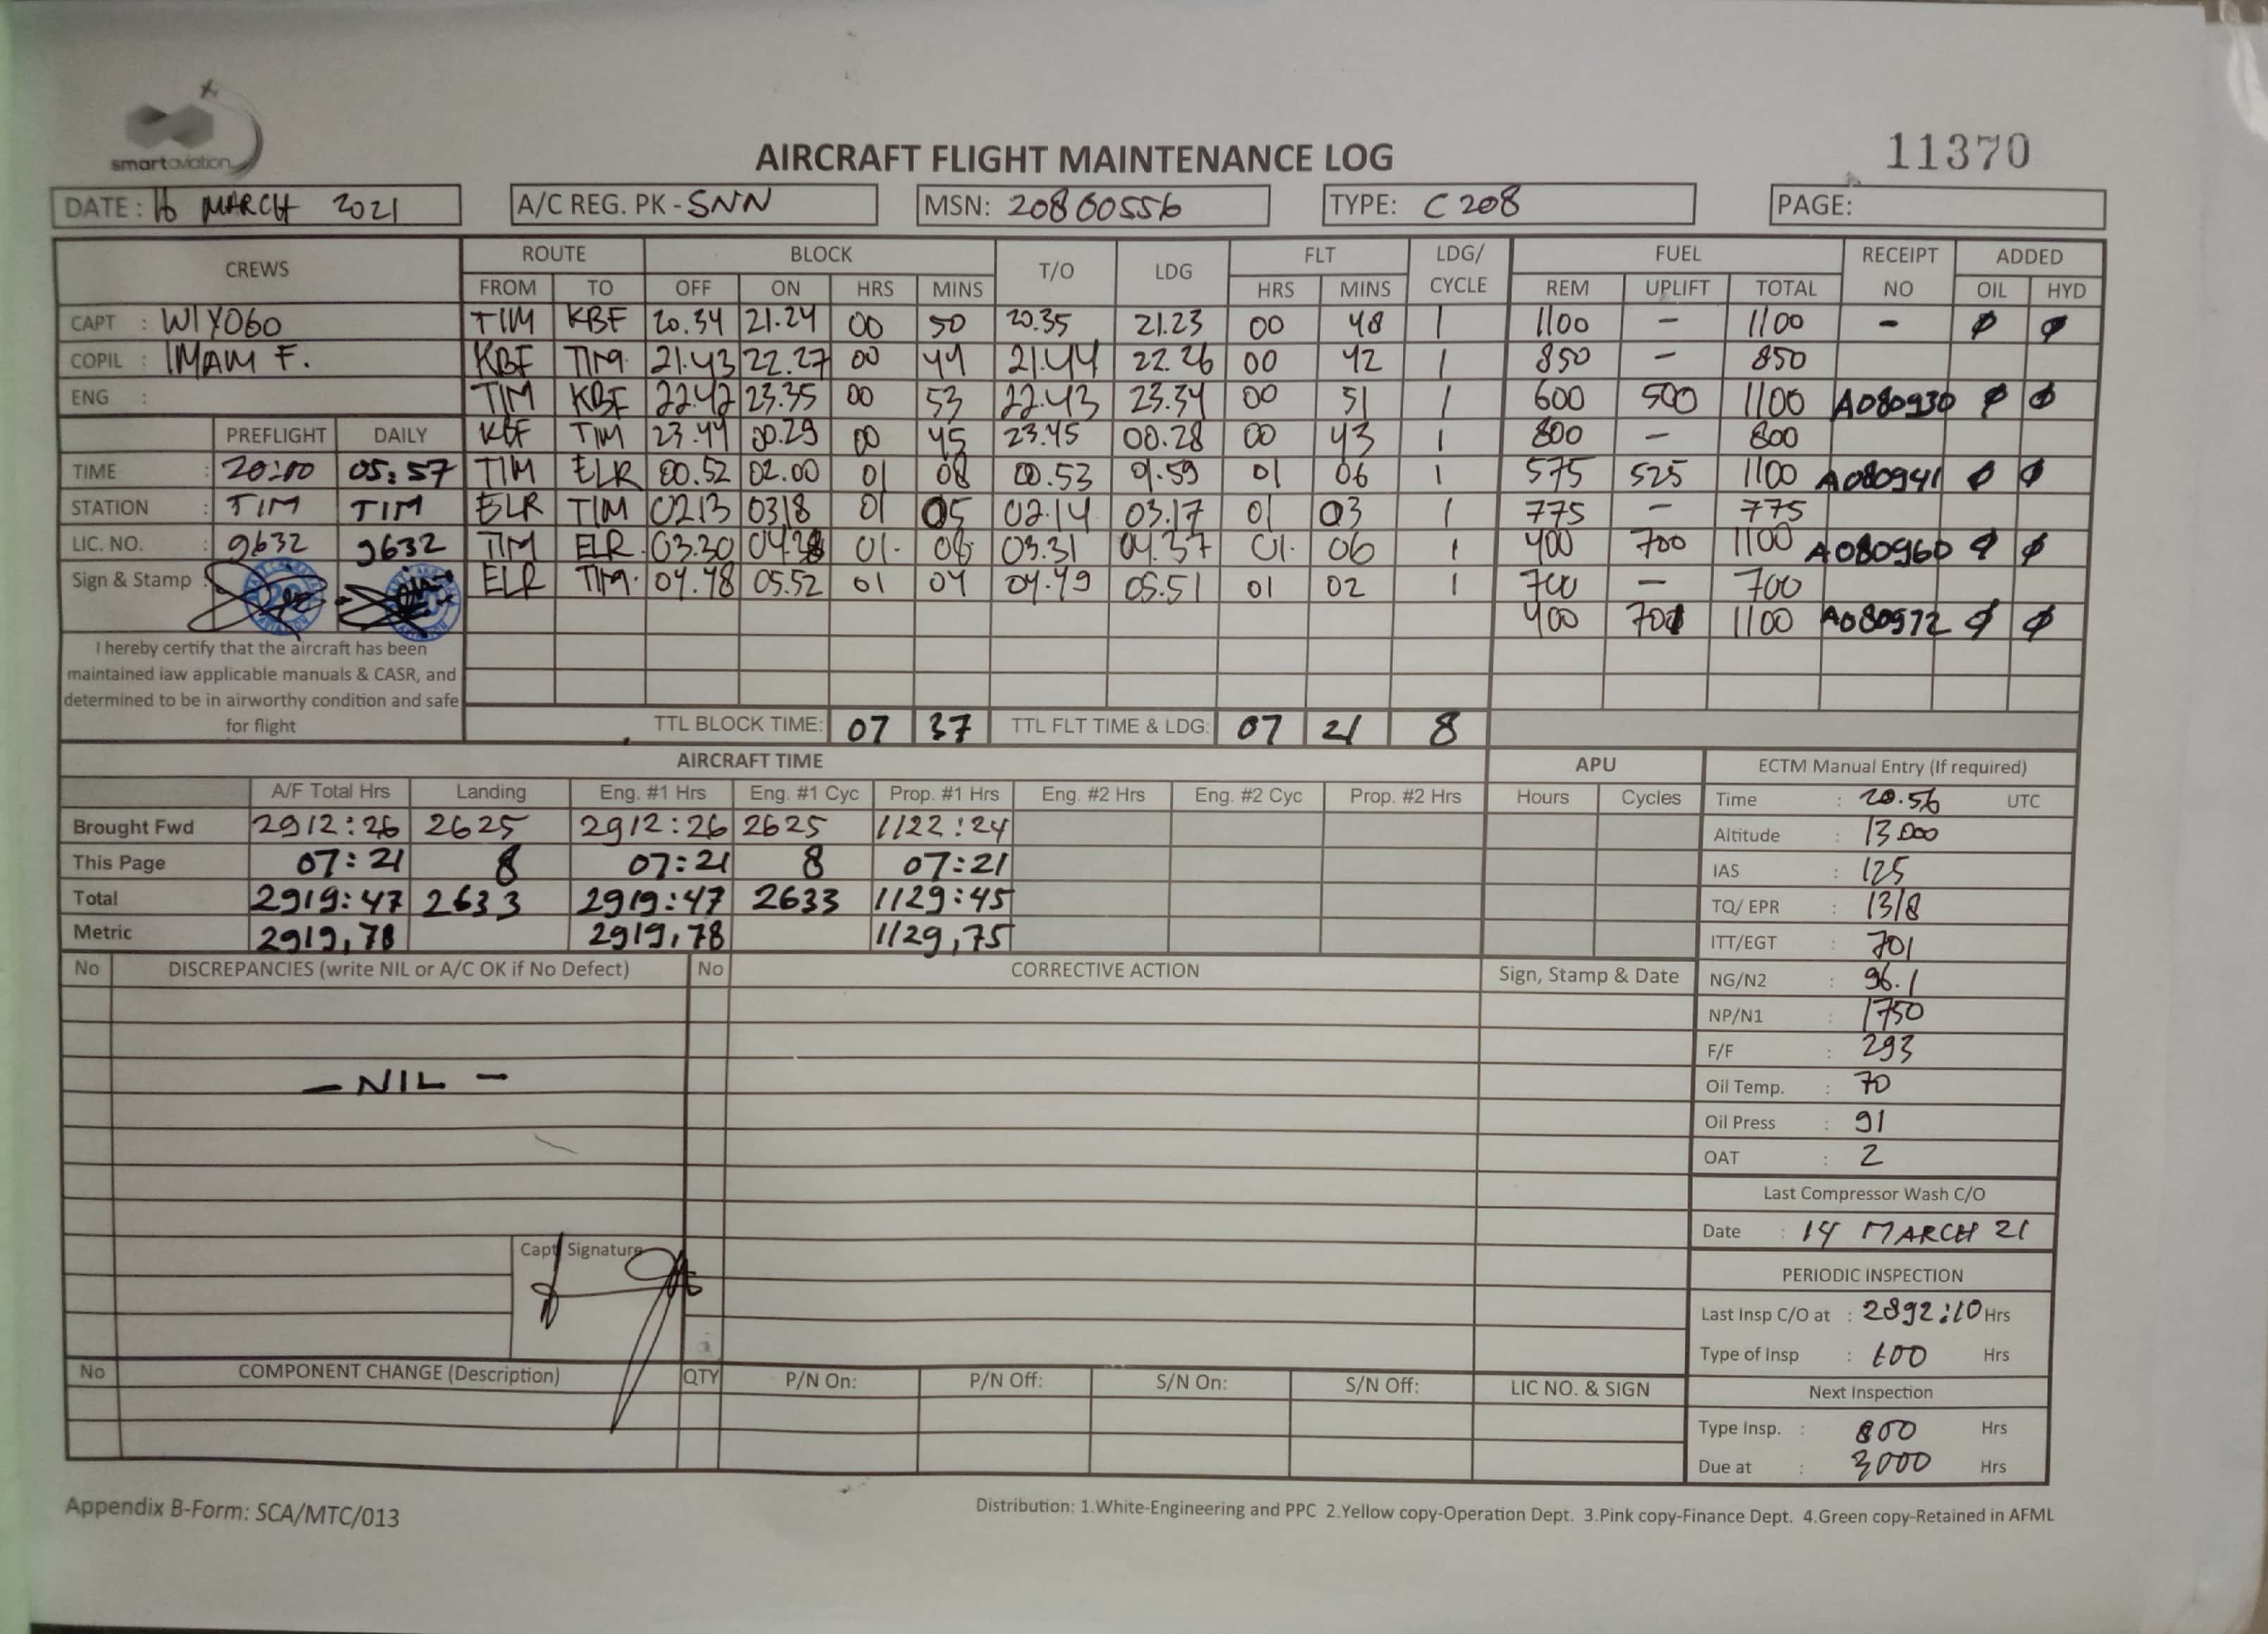 smartaviation
AIRCRAFT FLIGHT MAINTENANCE LOG
11370
DATE: 16 MARCH 2021
A/C REG. PK - SNN
MSN: 20860556
TYPE: C 208
PAGE:
CREWS ROUTE BLOCK T/O LDG FLT LDG/ CYCLE FUEL RECEIPT NO ADDED
FROM TO OFF ON HRS MINS HRS MINS REM UPLIFT TOTAL OIL HYD
CAPT : WIYOGO TIM KBF 20.34 21.24 00 50 20.35 21.23 00 48 1 1100 - 1100 - ø ø
COPIL : IMAM F. KBF TIM 21.43 22.27 00 44 21.44 22.26 00 42 1 850 - 850
ENG : TIM KBF 22.42 23.35 00 53 22.43 23.34 00 51 1 600 500 1100 A080930 ø ø
PREFLIGHT DAILY KBF TIM 23.44 00.29 00 45 23.45 00.28 00 43 1 800 - 800
TIME : 20:10 05:57 TIM ELR 00.52 02.00 01 08 00.53 01.59 01 06 1 575 525 1100 A080941 ø ø
STATION : TIM TIM ELR TIM 0213 0318 01 05 02.14 03.17 01 03 1 775 - 775
LIC. NO. : 9632 9632 TIM ELR 03.30 04.38 01 08 03.31 04.37 01 06 1 400 700 1100 A080960 ø ø
Sign & Stamp : ELR TIM 04.48 05.52 01 04 04.49 05.51 01 02 1 700 - 700
400 701 1100 A080972 ø ø
I hereby certify that the aircraft has been
maintained iaw applicable manuals & CASR, and
determined to be in airworthy condition and safe
for flight
TTL BLOCK TIME: 07 37 TTL FLT TIME & LDG: 07 21 8
AIRCRAFT TIME APU ECTM Manual Entry (If required)
A/F Total Hrs Landing Eng. #1 Hrs Eng. #1 Cyc Prop. #1 Hrs Eng. #2 Hrs Eng. #2 Cyc Prop. #2 Hrs Hours Cycles Time : 20.56 UTC
Brought Fwd 2912:26 2625 2912:26 2625 1122:24 Altitude : 13000
This Page 07:21 8 07:21 8 07:21 IAS : 125
Total 2919:47 2633 2919:47 2633 1129:45 TQ/ EPR : 1318
Metric 2919,78 2919,78 1129,75 ITT/EGT : 701
No DISCREPANCIES (write NIL or A/C OK if No Defect) No CORRECTIVE ACTION Sign, Stamp & Date NG/N2 : 96.1
NP/N1 : 1750
F/F : 293
- NIL - Oil Temp. : 70
Oil Press : 91
OAT : 2
Last Compressor Wash C/O
Date : 14 MARCH 21
Capt Signature
PERIODIC INSPECTION
Last Insp C/O at : 2892:10 Hrs
Type of Insp : 600 Hrs
No COMPONENT CHANGE (Description) QTY P/N On: P/N Off: S/N On: S/N Off: LIC NO. & SIGN Next Inspection
Type Insp. : 800 Hrs
Due at : 3000 Hrs
Appendix B-Form: SCA/MTC/013
Distribution: 1.White-Engineering and PPC 2.Yellow copy-Operation Dept. 3.Pink copy-Finance Dept. 4.Green copy-Retained in AFML